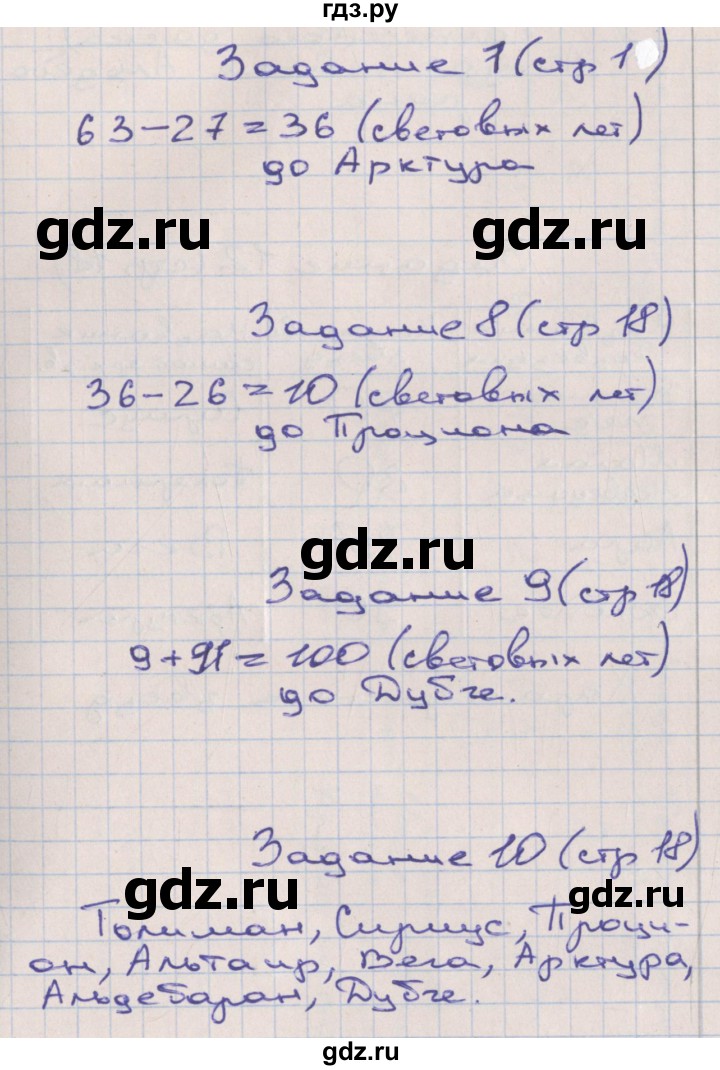 гдз.ру
Задание 1 (стр 1 )
63-27=36 (световых лет)
до Арктура
gdz.ru gdz.ru
Задание 8 (стр 18)
36-26=10 (световых лет)
до Проциона
gdz.ru
Задание 9 (стр 18)
9+91=100 (световых лет)
до Дубге.
Задание 10 (стр 18)
gdz.ru gdz.ru
Толиман, Сириус, Проци-
он, Альтаир, Вега, Арктура,
Альдебаран, Дубге.
gdz.ru